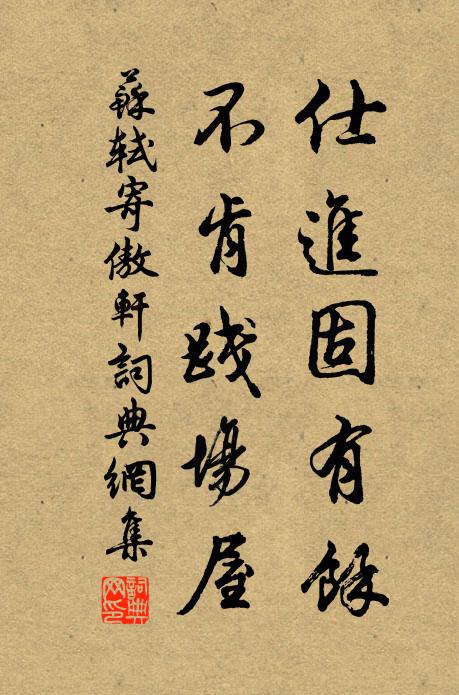 仕進固有餘
不肯踐場屋
蘇軾寄傲軒詞典網集
詞典網印